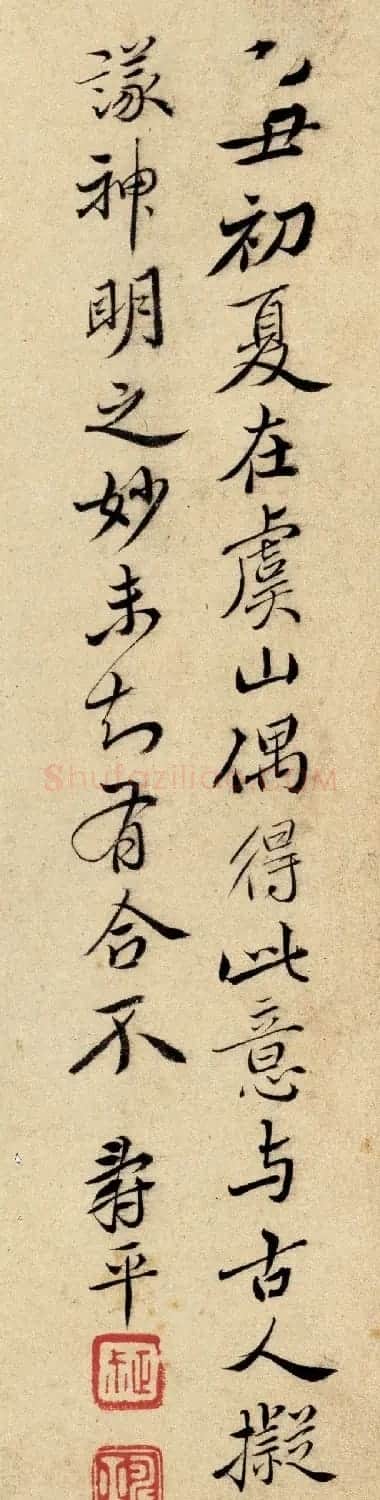 乙丑初夏在虞山偶得此意与古人擬
議神明之妙未知有合不 壽平